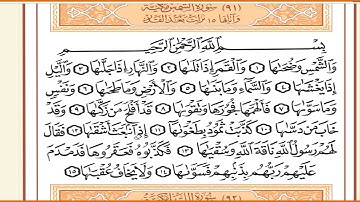 (٩١) سورة الشمس مكية
وآياتها ١٥ نزلت بعد القدر
بِسْمِ ٱللَّهِ ٱلرَّحْمَـٰنِ ٱلرَّحِيمِ
وَٱلشَّمْسِ وَضُحَىٰهَا ١ وَٱلْقَمَرِ إِذَا تَلَىٰهَا ٢ وَٱلنَّهَارِ إِذَا جَلَّىٰهَا ٣ وَٱلَّيْلِ
إِذَا يَغْشَىٰهَا ٤ وَٱلسَّمَآءِ وَمَا بَنَىٰهَا ٥ وَٱلْأَرْضِ وَمَا طَحَىٰهَا ٦ وَنَفْسٍ
وَمَا سَوَّىٰهَا ٧ فَأَلْهَمَهَا فُجُورَهَا وَتَقْوَىٰهَا ٨ قَدْ أَفْلَحَ مَن زَكَّىٰهَا ٩ وَقَدْ
خَابَ مَن دَسَّىٰهَا ١٠ كَذَّبَتْ ثَمُودُ بِطَغْوَىٰهَآ ١١ إِذِ ٱنۢبَعَثَ أَشْقَىٰهَا ١٢ فَقَالَ
لَهُمْ رَسُولُ ٱللَّهِ نَاقَةَ ٱللَّهِ وَسُقْيَـٰهَا ١٣ فَكَذَّبُوهُ فَعَقَرُوهَا فَدَمْدَمَ
عَلَيْهِمْ رَبُّهُم بِذَنۢبِهِمْ فَسَوَّىٰهَا ١٤ وَلَا يَخَافُ عُقْبَـٰهَا ١٥
(٩٢) سورة الليل مكية